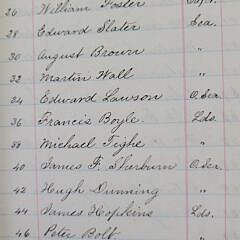 26 William Foster
28 Edward Slater Sea.
30 August Brown "
32 Martin Wall "
34 Edward Lawson O. Sea.
36 Francis Boyle. Lds.
38 Michael Tighe "
40 James F. Sherburn O. Sea.
42 Hugh Dunning "
44 James Hopkins Lds.
46 Peter Bolt. "